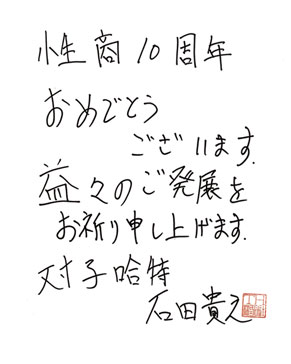 性商10周年
おめでとう
ございます.
益々のご発展を
お祈り申し上げます.
対子哈特
石田貴之